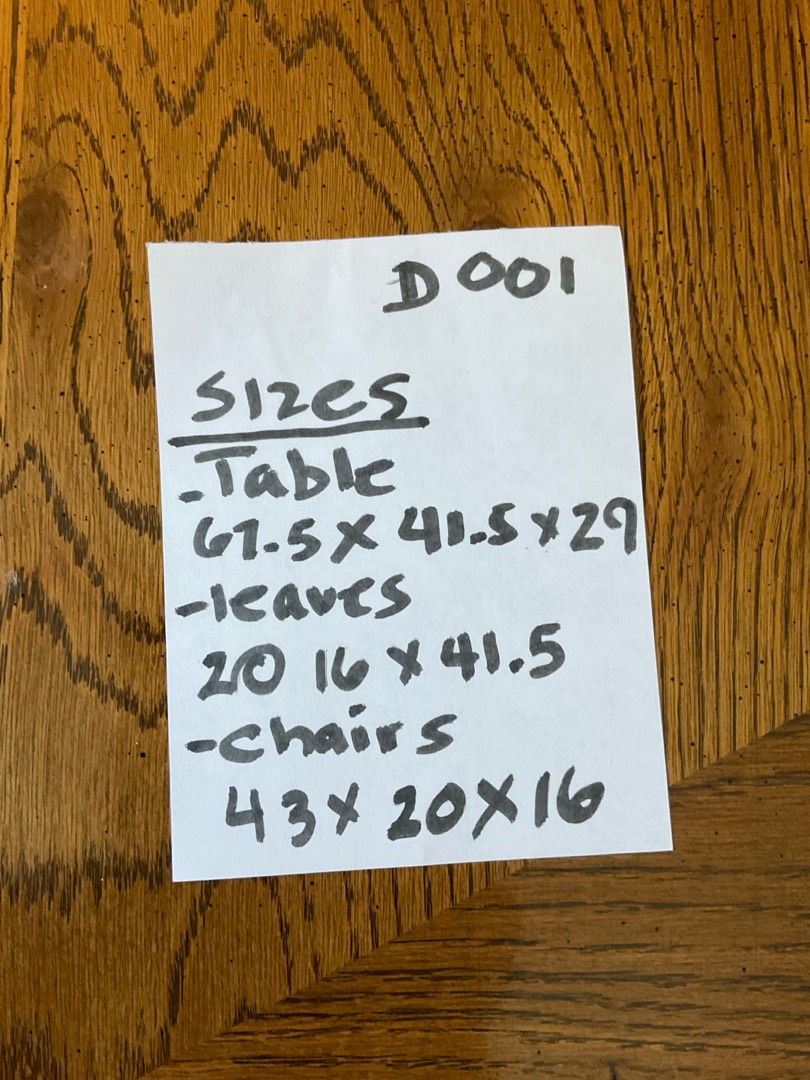 D 001
SIZES
-Table
67.5 X 41.5 X 29
-leaves
20 16 X 41.5
-chairs
43 X 20 X 16